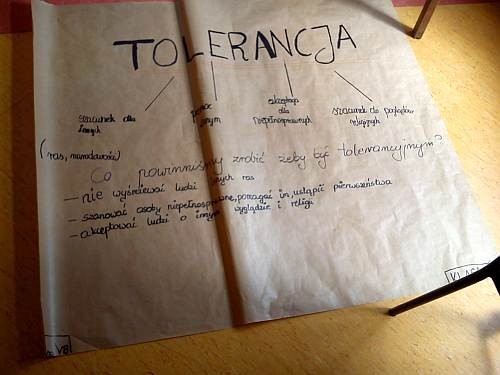 TOLERANCJA
szacunek dla innych
pomoc innym
akceptacja dla niepełnosprawnych
szacunek do poglądów religijnych
(ras, narodowości)
Co powinniśmy zrobić żeby być tolerancyjnym?
- nie wyśmiewać ludzi innych ras
- szanować osoby niepełnosprawne, pomagać im, ustąpić pierwszeństwa
- akceptować ludzi o innym wyglądzie i religii
VB